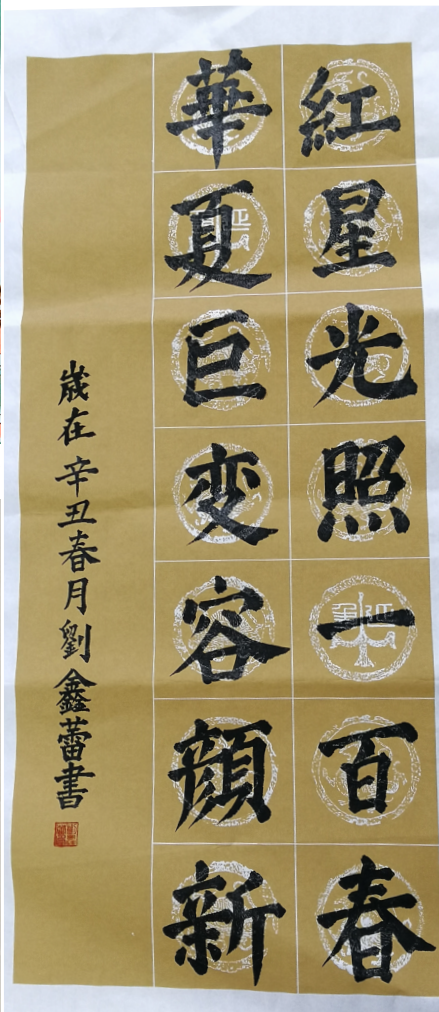 紅星光照一百春
華夏巨变容顔新
歲在辛丑春月劉鑫蕾書